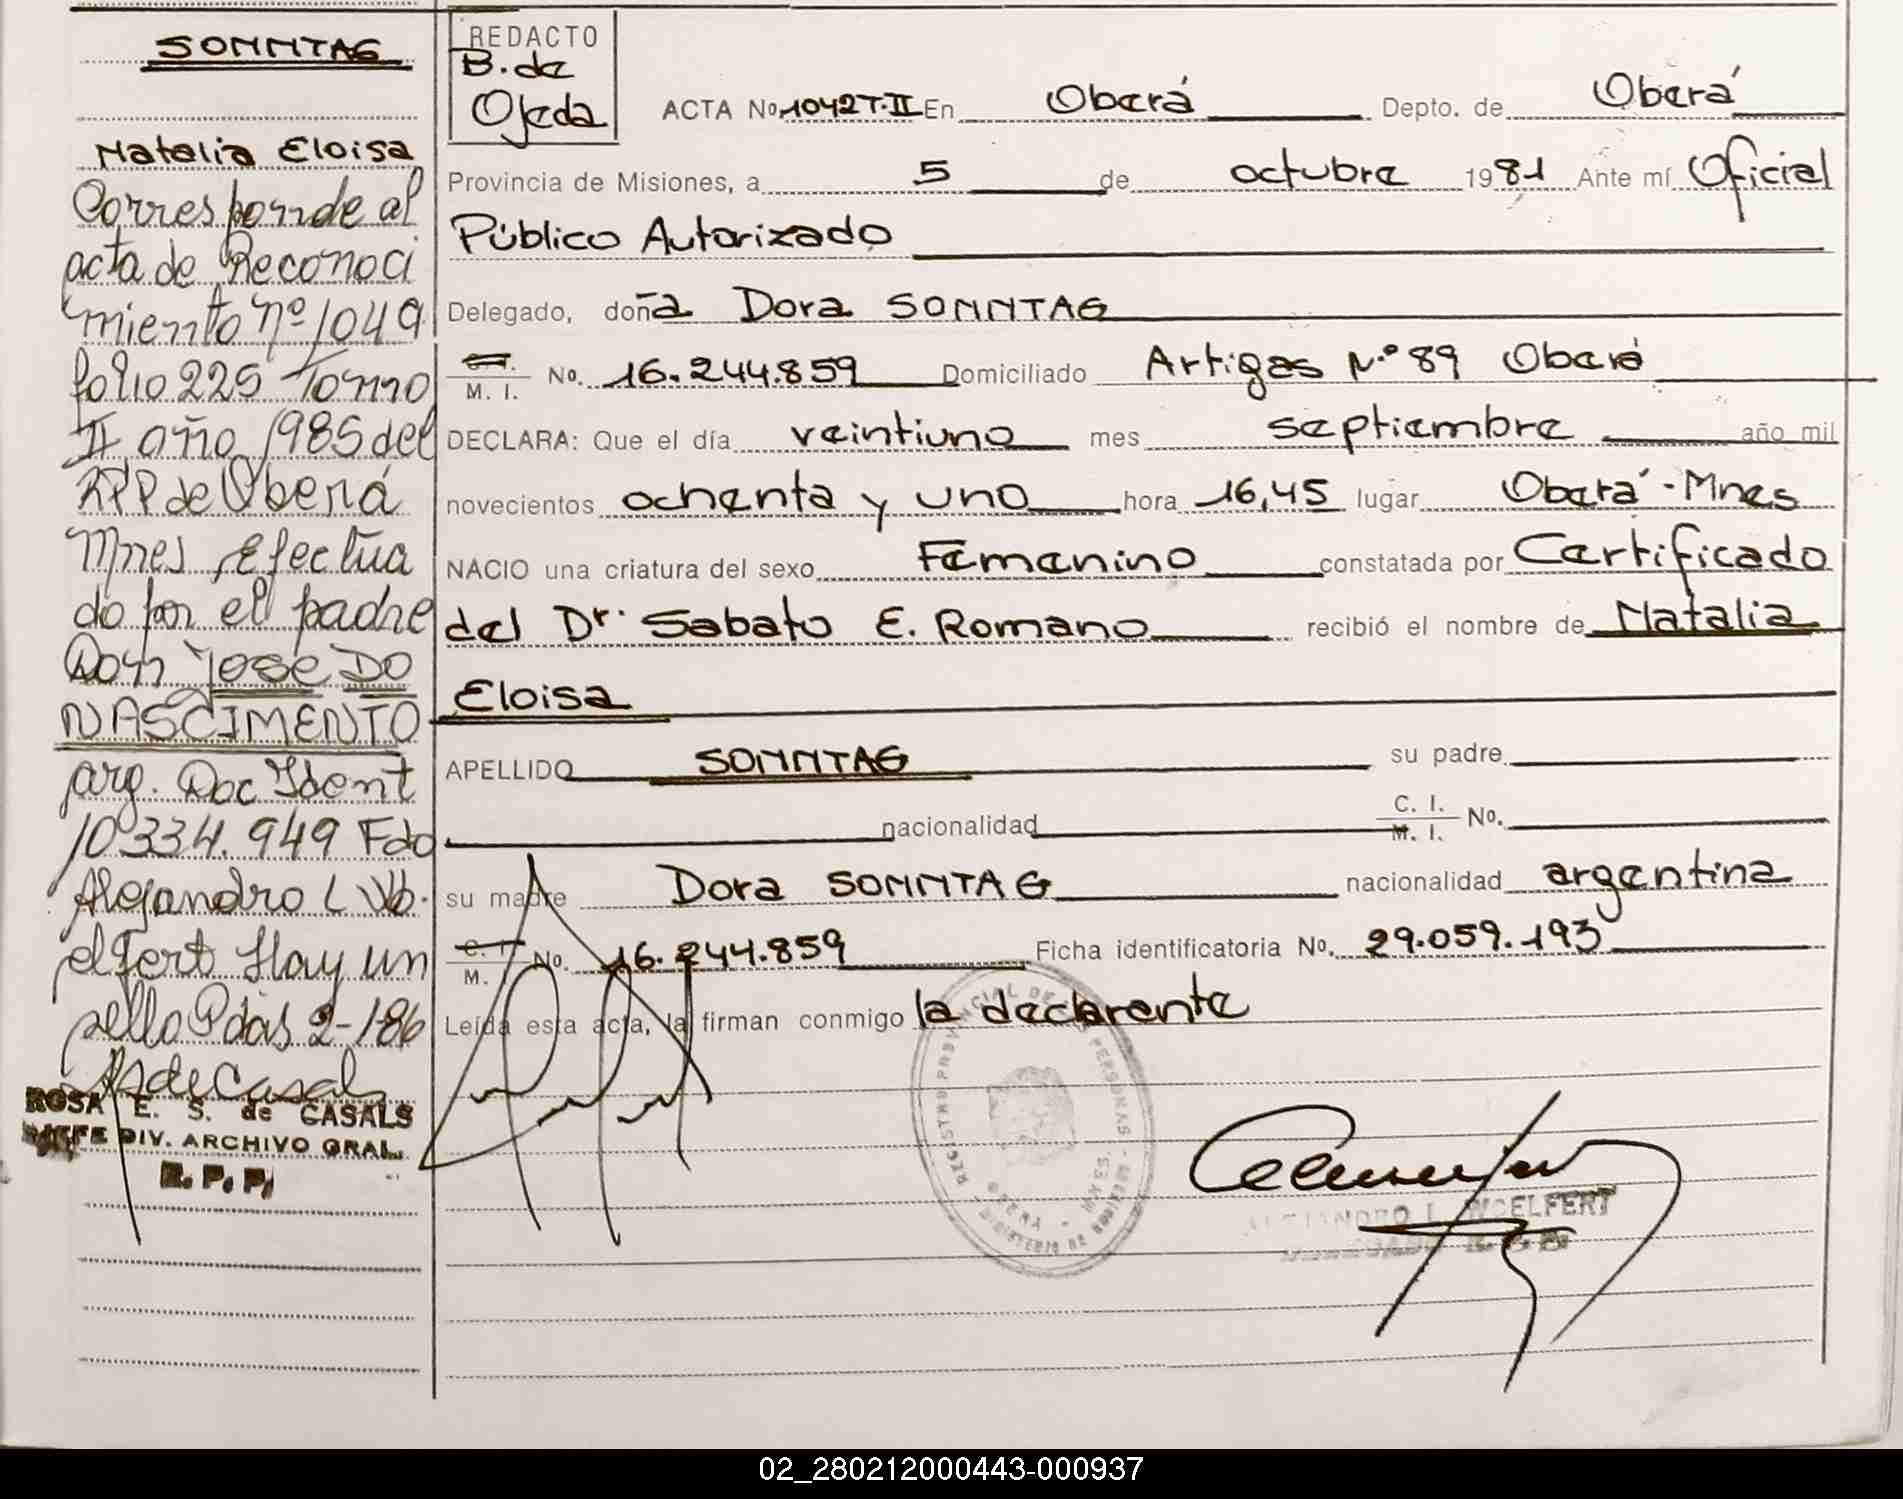 SONNTAG
Natalia Eloisa
Corresponde al
acta de Reconoci
miento nº 1049
folio 225 Tomo
II año 1985 del
RPP de Oberá
Mnes, Efectua
do por el padre
Don Jose DO
NASCIMENTO
arg. Doc Ident
10334.949 Fdo
Alejandro L Wo.
elfert Hay un
sello Pdas 2-1-86
RS de Casals
ROSA E. S. de CASALS
JEFE DIV. ARCHIVO GRAL.
R. P. P.
REDACTO
B. de
Ojeda
ACTA No 1042 T. II En Oberá Depto. de Oberá
Provincia de Misiones, a 5 de octubre 1981 Ante mí Oficial
Público Autorizado
Delegado, doña Dora SONNTAG
C. I.
M. I. No. 16.244.859 Domiciliado Artigas N.º 89 Oberá
DECLARA: Que el día veintiuno mes septiembre año mil
novecientos ochenta y uno hora 16,45 lugar Oberá - Mnes
NACIO una criatura del sexo Femenino constatada por Certificado
del Dr. Sabato E. Romano recibió el nombre de Natalia
Eloisa
APELLIDO SONNTAG su padre
nacionalidad C. I.
M. I. No.
su madre Dora SONNTAG nacionalidad argentina
C. I.
M. No. 16.244.859 Ficha identificatoria No. 29.059.193
Leída esta acta, la firman conmigo la declarante
REGISTRO PROVINCIAL DE LAS PERSONAS
OBERA - MNES.
MINISTERIO DE GOBIERNO
ALEJANDRO L. WOELFERT
02_280212000443-000937